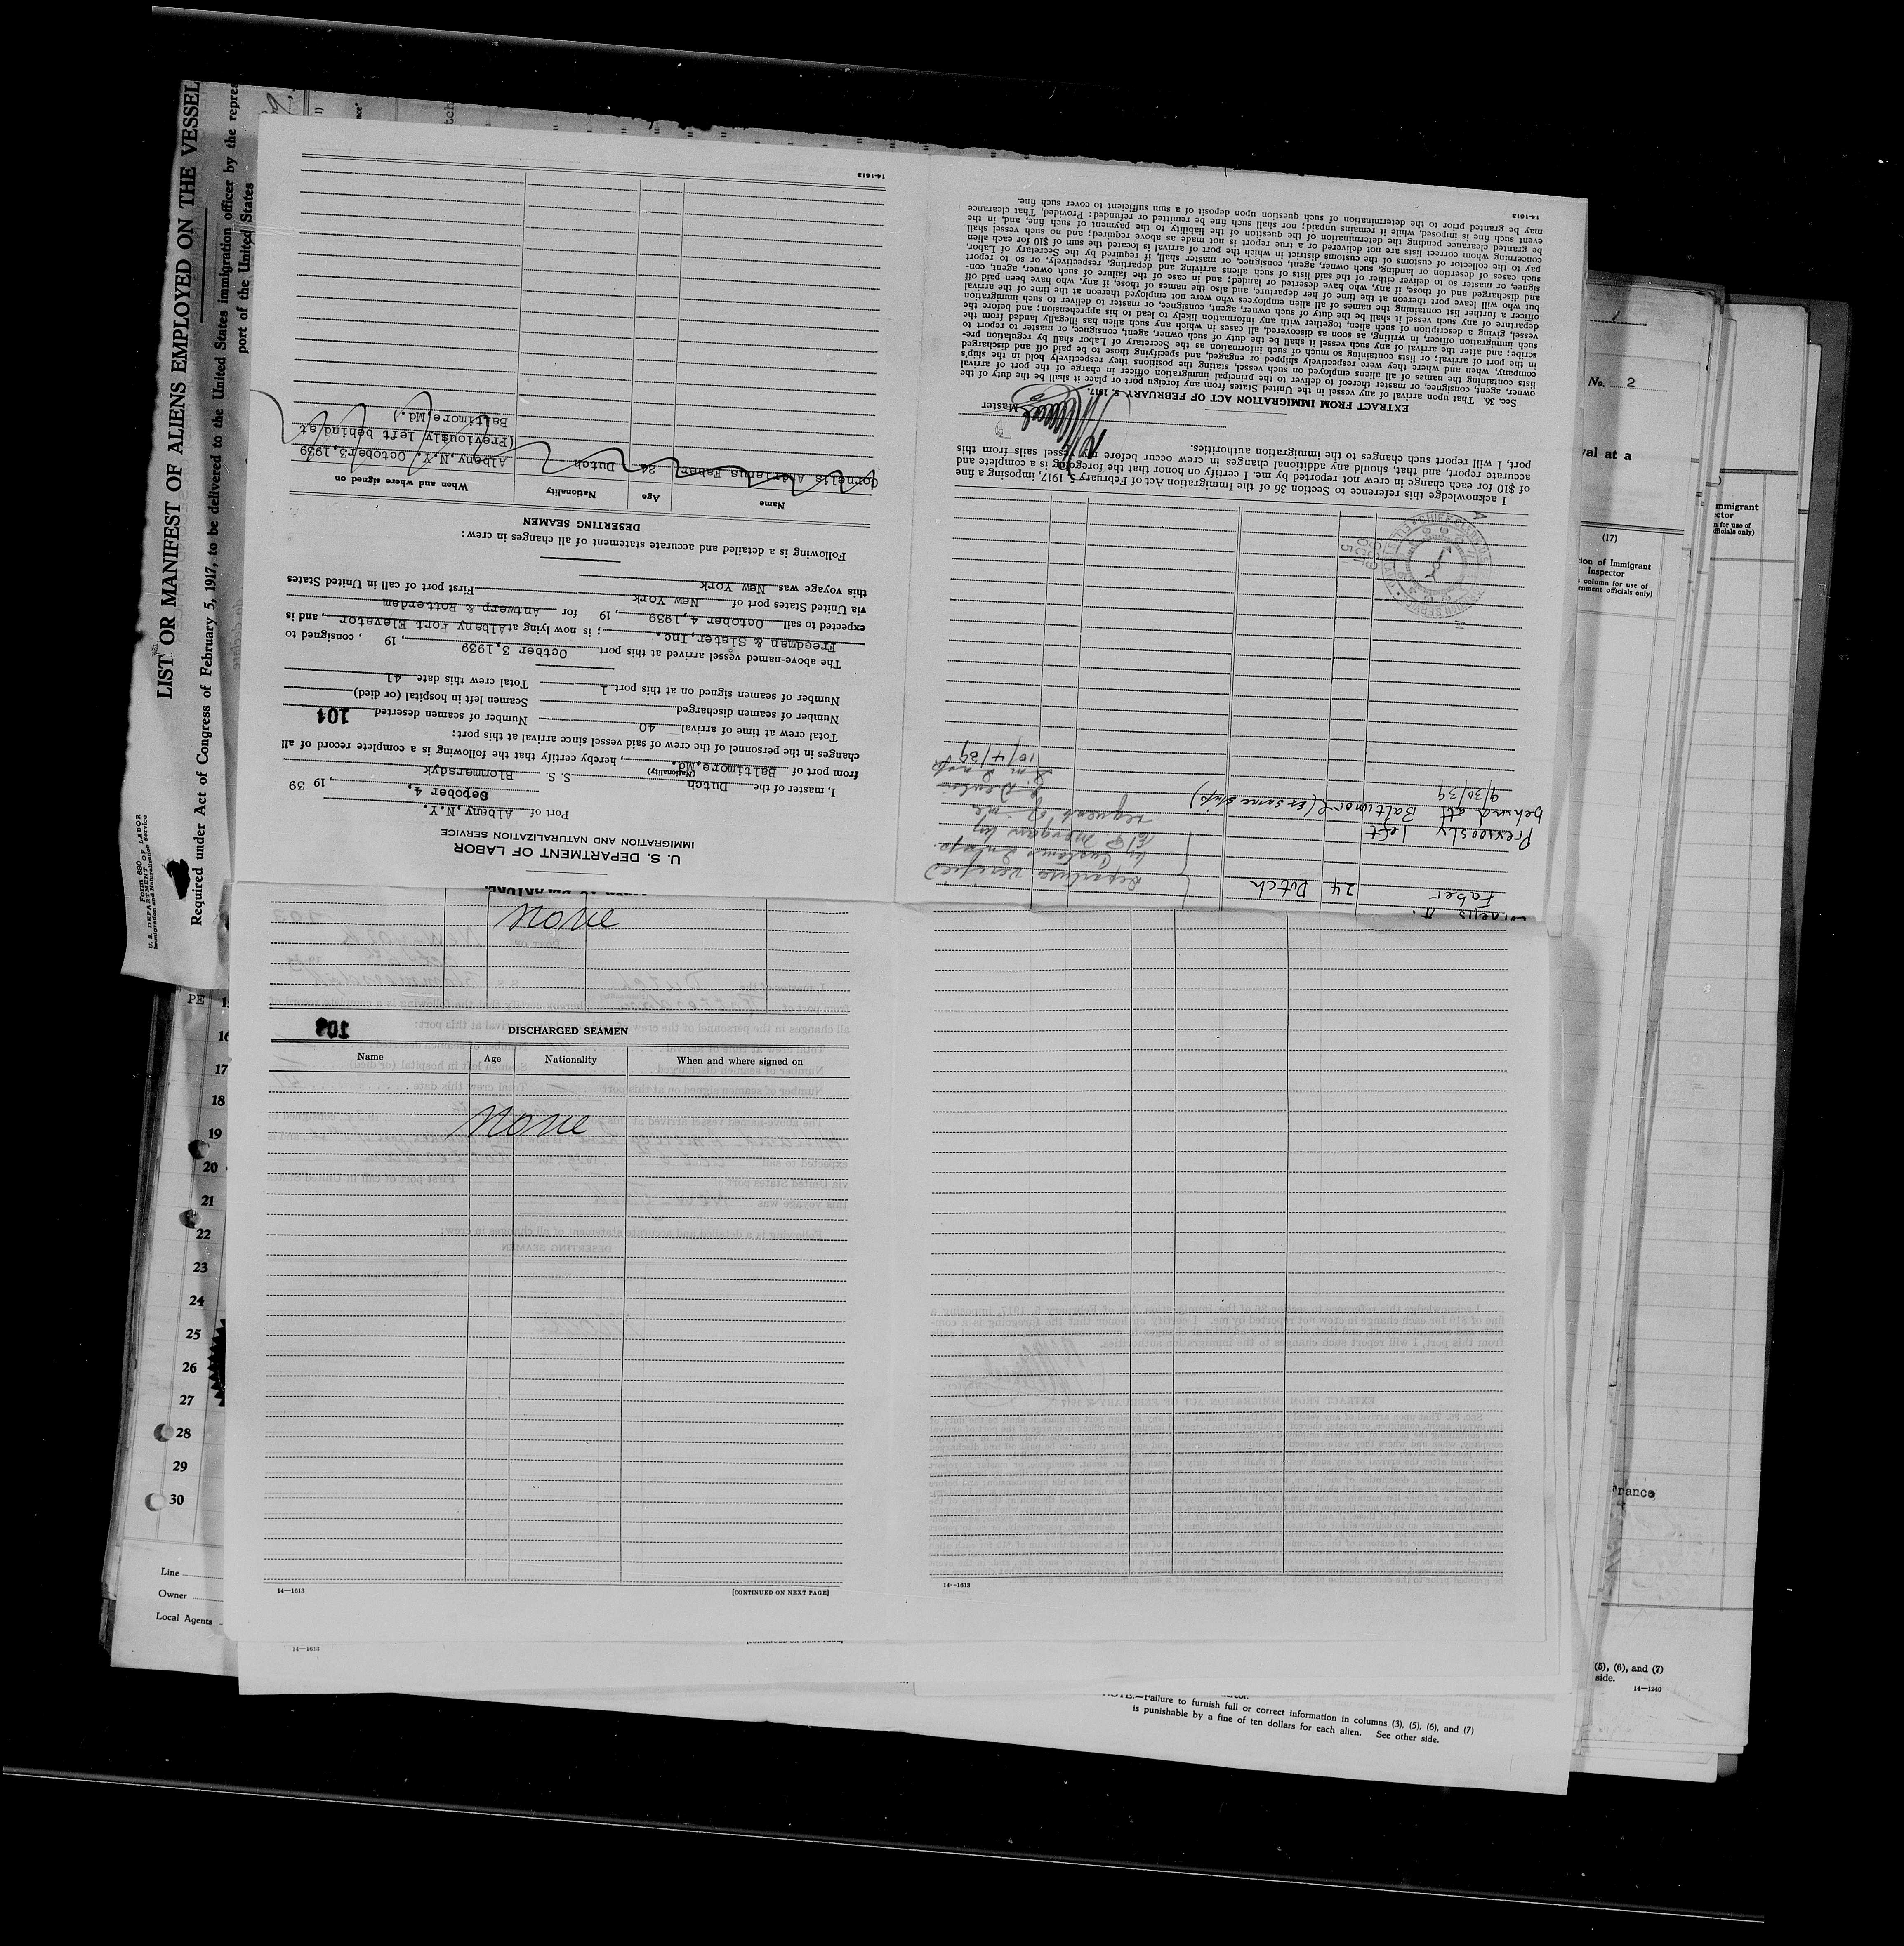 LIST OR MANIFEST OF ALIENS EMPLOYED ON THE VESSEL
Required under Act of Congress of February 5, 1917, to be delivered to the United States immigration officer by the repres
port of the United States
Form 680
U. S. DEPARTMENT OF LABOR
Immigration and Naturalization Service
U. S. DEPARTMENT OF LABOR
IMMIGRATION AND NATURALIZATION SERVICE
Port of Albany, N.Y.
4, 19 39
I, master of the Dutch S. S. Blommersdyk
(Nationality)
from port of Baltimore, Md., hereby certify that the following is a complete record of all
changes in the personnel of the crew of said vessel since arrival at this port:
Total crew at time of arrival 40 Number of seamen deserted
101
Number of seamen discharged Seamen left in hospital (or died)
Number of seamen signed on at this port 1 Total crew this date 41
The above-named vessel arrived at this port October 3, 1939, 19 , consigned to
Freedman & Slater, Inc. ; is now lying at Albany Port Elevator, and is
expected to sail October 4, 1939, 19 for Antwerp & Rotterdam
via United States port of New York First port of call in United States
this voyage was New York
Following is a detailed and accurate statement of all changes in crew:
DESERTING SEAMEN
Name Age Nationality When and where signed on
Cornelis Andrianus Faber 24 Dutch Albany, N.Y. October 3, 1939
(Previously left behind at
Baltimore, Md.)
14-1613
Faber 24 Dutch
Departure verified
by Customs Insp.
Morgan by
request of me
Previously left
behind at Baltimore (ex same ship)
9/30/39
10/4/39
I acknowledge this reference to Section 36 of the Immigration Act of February 5, 1917, imposing a fine
of $10 for each change in crew not reported by me. I certify on honor that the foregoing is a complete and
accurate report, and that, should any additional changes in crew occur before my vessel sails from this
port, I will report such changes to the immigration authorities.
Master
EXTRACT FROM IMMIGRATION ACT OF FEBRUARY 5, 1917
Sec. 36. That upon arrival of any vessel in the United States from any foreign port or place it shall be the duty of the
owner, agent, consignee, or master thereof to deliver to the principal immigration officer in charge of the port of arrival
lists containing the names of all aliens employed on such vessel, stating the positions they respectively hold in the ship's
company, when and where they were respectively shipped or engaged, and specifying those to be paid off and discharged
in the port of arrival; or lists containing so much of such information as the Secretary of Labor shall by regulation pre-
scribe; and after the arrival of any such vessel it shall be the duty of such owner, agent, consignee, or master to report to
such immigration officer, in writing, as soon as discovered, all cases in which any such alien has illegally landed from the
vessel, giving a description of such alien, together with any information likely to lead to his apprehension; and before the
departure of any such vessel it shall be the duty of such owner, agent, consignee, or master to deliver to such immigration
officer a further list containing the names of all alien employees who were not employed thereon at the time of the arrival
but who will leave port thereon at the time of her departure, and also the names of those, if any, who have been paid off
and discharged and of those, if any, who have deserted or landed; and in case of the failure of such owner, agent, con-
signee, or master so to deliver either of the said lists of such aliens arriving and departing, respectively, or so to report
such cases of desertion or landing, such owner, agent, consignee, or master shall, if required by the Secretary of Labor,
pay to the collector of customs of the customs district in which the port of arrival is located the sum of $10 for each alien
concerning whom correct lists are not delivered or a true report is not made as above required; and no such vessel shall
be granted clearance pending the determination of the question of the liability to the payment of such fine, and, in the
event such fine is imposed, while it remains unpaid; nor shall such fine be remitted or refunded: Provided, That clearance
may be granted prior to the determination of such question upon deposit of a sum sufficient to cover such fine.
14-1613
None
DISCHARGED SEAMEN
Name Age Nationality When and where signed on
None
14—1613
[CONTINUED ON NEXT PAGE]
14—1613
14—1613
PE
16
17
18
19
20
21
22
23
24
25
26
27
28
29
30
Line
Owner
Local Agents
No. 2
val at a
(17)
Inspector
column for use of
officials only)
rance
(5), (6), and (7)
side.
14—1240
NOTE.—Failure to furnish full or correct information in columns (3), (5), (6), and (7)
is punishable by a fine of ten dollars for each alien. See other side.